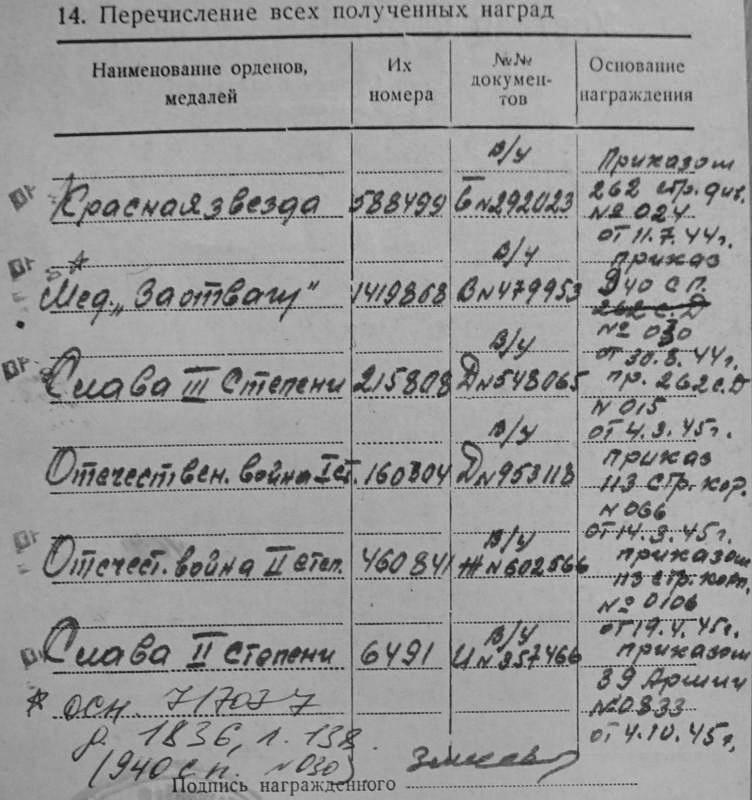 14. Перечисление всех полученных наград
Наименование орденов,
медалей
Их
номера
№№
докумен-
тов
Основание
награждения
в/у
Приказом
Красная звезда 588499 Б№292023 262 стр. див.
№ 024
от 11.7.44г.
в/у
приказ
Мед. „За отвагу" 1419868 В№479953 940 с.п.
262 с.Д
№ 030
в/у
от 30.8.44г.
Слава III Степени 215808 Д№548065 пр. 262 с.Д
№ 015
в/у
от 4.3.45г.
Отечествен. война I ст. 160304 Д№953118 приказ
113 стр. кор.
№ 066
в/у
от 14.3.45г.
Отечест. война II степ. 460841 Ж№602566 приказом
113 стр. корп.
№ 0106
в/у
от 19.4.45г.
Слава II Степени 6491 И№357466 приказом
39 Армии
№0833
от 4.10.45г.
осн. 717037
д. 1836, л. 138
(940 с.п. №030)
Подпись награжденного